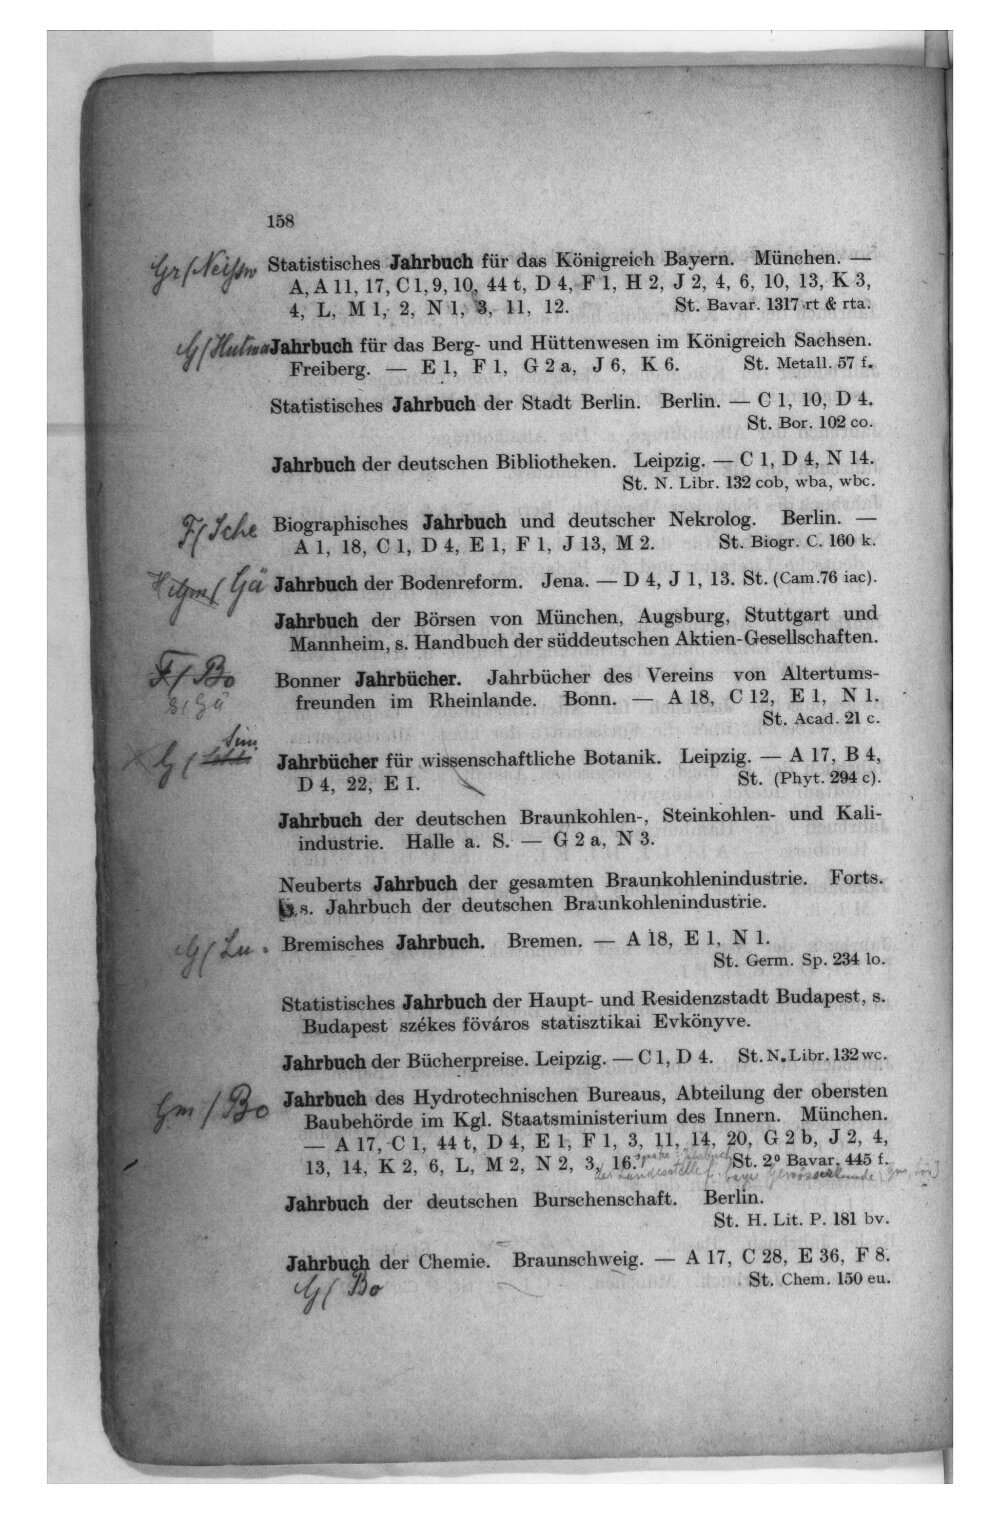 158
Gr/Neissw Statistisches Jahrbuch für das Königreich Bayern. München. —
A, A 11, 17, C 1, 9, 10, 44 t, D 4, F 1, H 2, J 2, 4, 6, 10, 13, K 3,
4, L, M 1, 2, N 1, 3, 11, 12. St. Bavar. 1317 rt & rta.
G/ Jahrbuch für das Berg- und Hüttenwesen im Königreich Sachsen.
Freiberg. — E 1, F 1, G 2 a, J 6, K 6. St. Metall. 57 f.
Statistisches Jahrbuch der Stadt Berlin. Berlin. — C 1, 10, D 4.
St. Bor. 102 co.
Jahrbuch der deutschen Bibliotheken. Leipzig. — C 1, D 4, N 14.
St. N. Libr. 132 cob, wba, wbc.
F/Sche Biographisches Jahrbuch und deutscher Nekrolog. Berlin. —
A 1, 18, C 1, D 4, E 1, F 1, J 13, M 2. St. Biogr. C. 160 k.
Gä Jahrbuch der Bodenreform. Jena. — D 4, J 1, 13. St. (Cam. 76 iac).
Jahrbuch der Börsen von München, Augsburg, Stuttgart und
Mannheim, s. Handbuch der süddeutschen Aktien-Gesellschaften.
F/Bo Bonner Jahrbücher. Jahrbücher des Vereins von Altertums-
freunden im Rheinlande. Bonn. — A 18, C 12, E 1, N 1.
Gä St. Acad. 21 c.
Sim
G/ Jahrbücher für wissenschaftliche Botanik. Leipzig. — A 17, B 4,
D 4, 22, E 1. St. (Phyt. 294 c).
Jahrbuch der deutschen Braunkohlen-, Steinkohlen- und Kali-
industrie. Halle a. S. — G 2 a, N 3.
Neuberts Jahrbuch der gesamten Braunkohlenindustrie. Forts.
s. Jahrbuch der deutschen Braunkohlenindustrie.
G/Lu. Bremisches Jahrbuch. Bremen. — A 18, E 1, N 1.
St. Germ. Sp. 234 lo.
Statistisches Jahrbuch der Haupt- und Residenzstadt Budapest, s.
Budapest székes főváros statisztikai Evkönyve.
Jahrbuch der Bücherpreise. Leipzig. — C 1, D 4. St. N. Libr. 132 wc.
Gm/Bo Jahrbuch des Hydrotechnischen Bureaus, Abteilung der obersten
Baubehörde im Kgl. Staatsministerium des Innern. München.
— A 17, C 1, 44 t, D 4, E 1, F 1, 3, 11, 14, 20, G 2 b, J 2, 4,
13, 14, K 2, 6, L, M 2, N 2, 3, 16. später: Jahrbuch St. 2° Bavar. 445 f.
der Landesstelle f. bayer. Gewässerkunde
Jahrbuch der deutschen Burschenschaft. Berlin.
St. H. Lit. P. 181 bv.
Jahrbuch der Chemie. Braunschweig. — A 17, C 28, E 36, F 8.
G/Bo St. Chem. 150 eu.